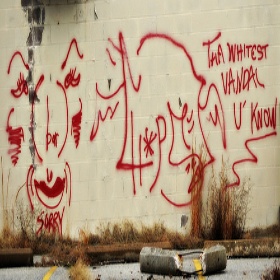 THA WHITEST
VANDAL
U' KNOW
SORRY